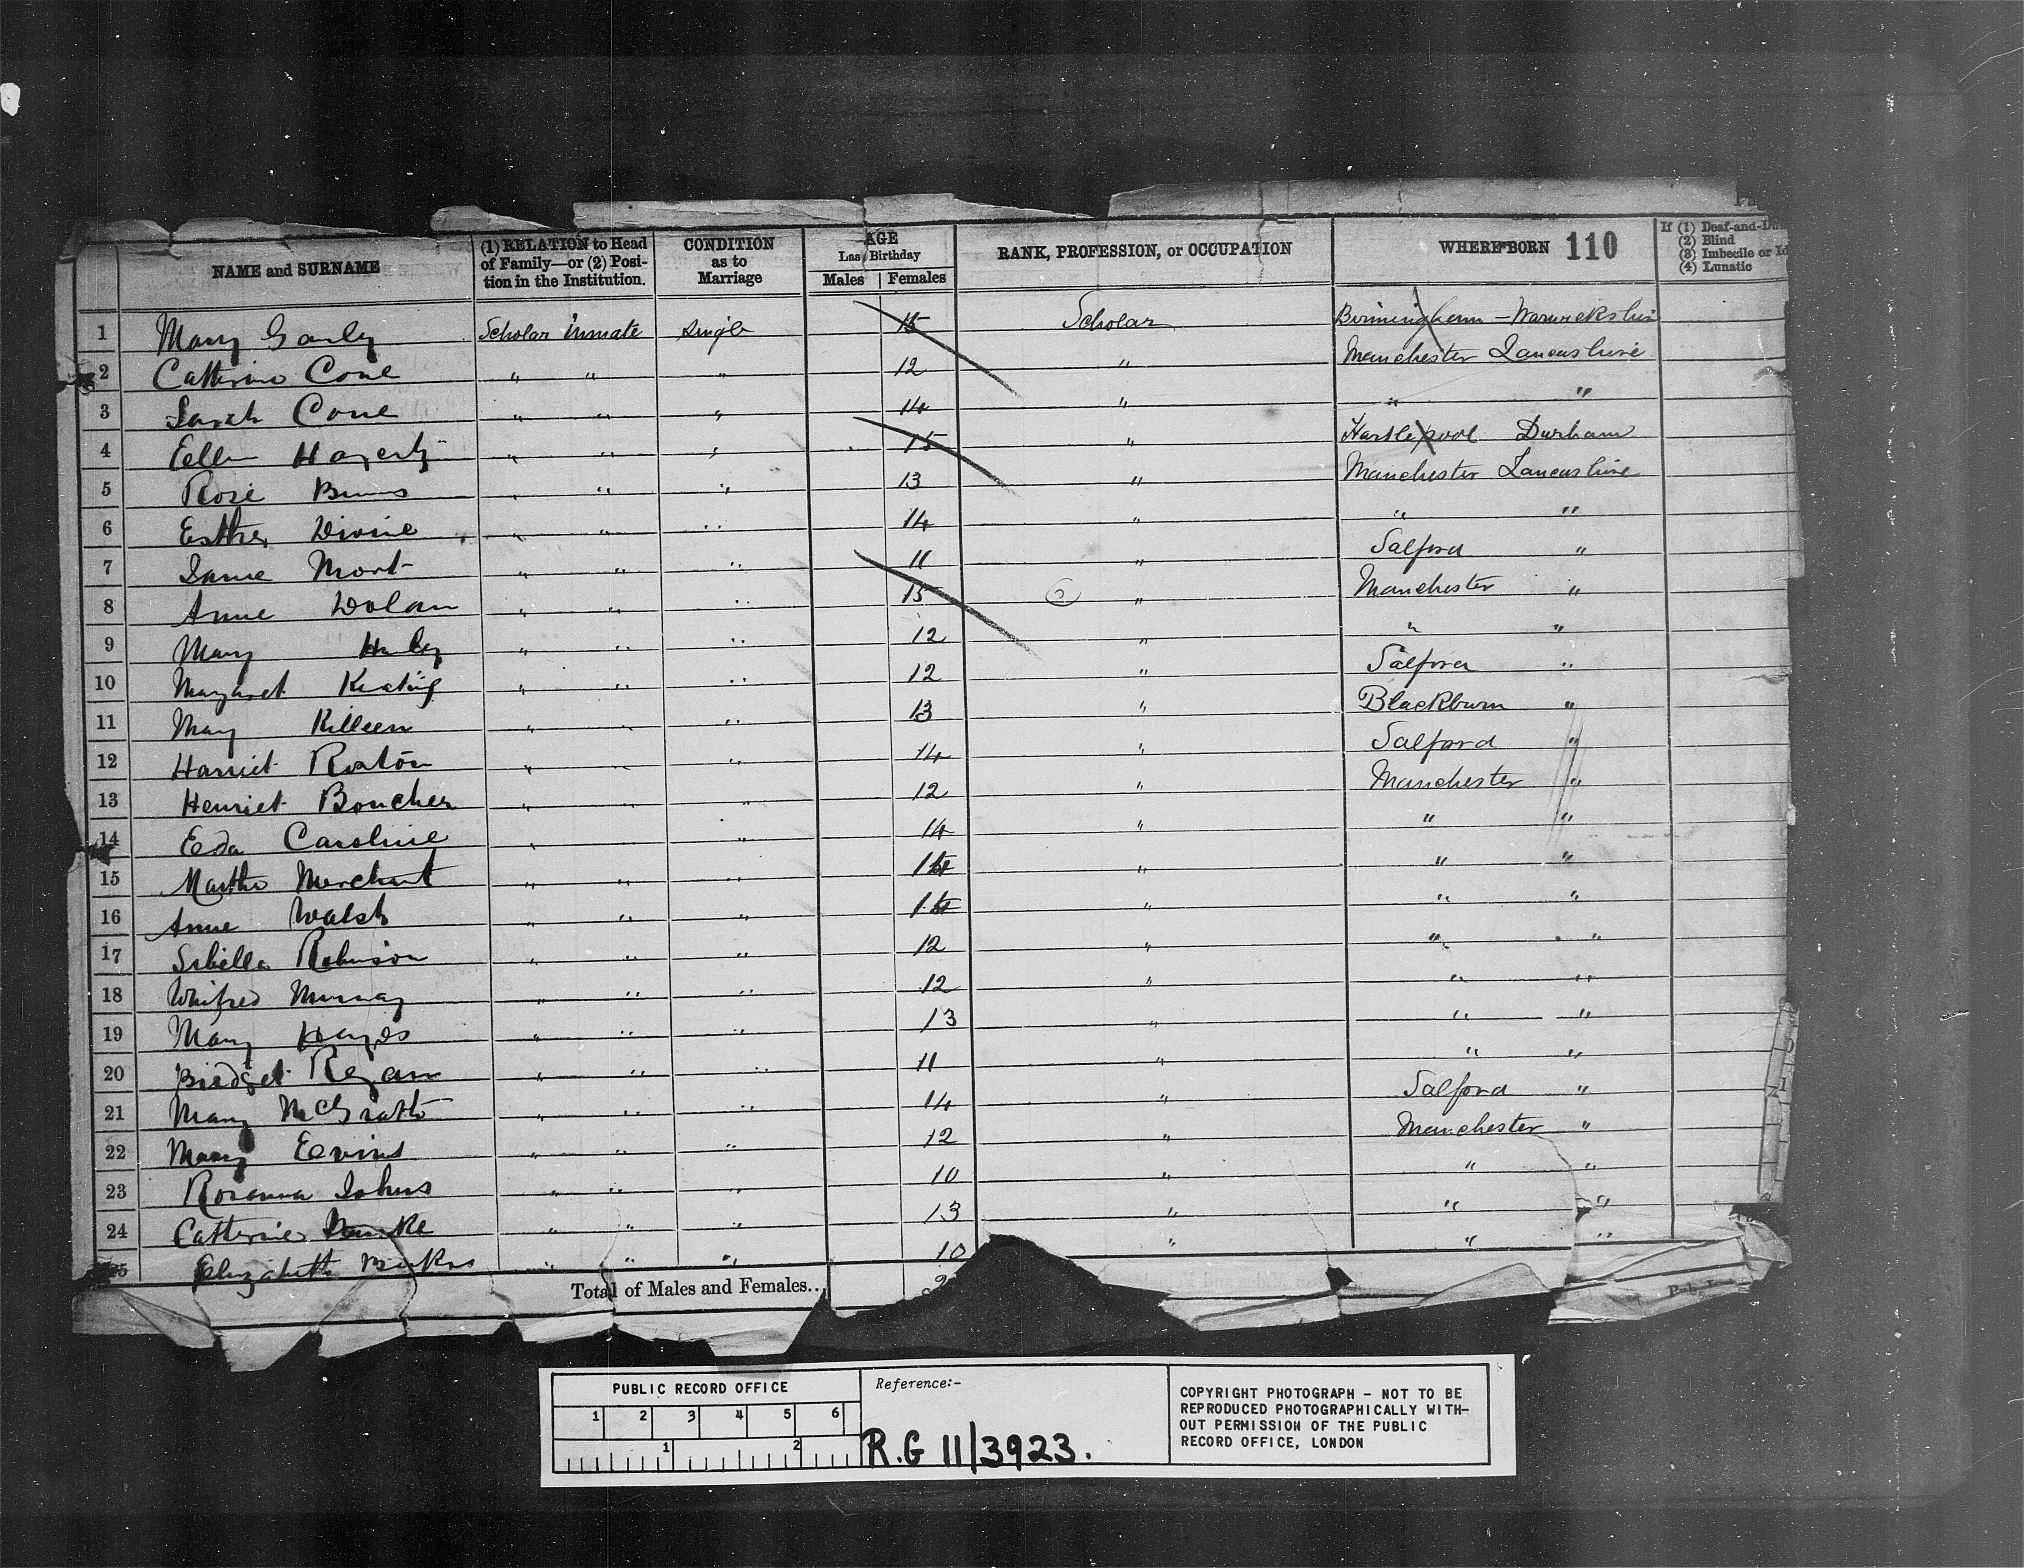 NAME and SURNAME
(1) RELATION to Head of Family—or (2) Position in the Institution.
CONDITION as to Marriage
AGE Last Birthday
Males Females
RANK, PROFESSION, or OCCUPATION
WHERE BORN 110
If (1) Deaf-and-Dumb
(2) Blind
(3) Imbecile or Id
(4) Lunatic
1 Mary Scholar Inmate Single 15 Scholar Birmingham – Warwickshire
2 Catherine Cone " " " 12 " Manchester Lancashire
3 Sarah Cone " " " 14 " " "
4 Ellen Hagerty " " " 15 " Hartlepool Durham
5 Rose Burns " " " 13 " Manchester Lancashire
6 Esther Divine " " " 14 " " "
7 Mort " " " 11 " Salford "
8 Anne Dolan " " " 15 " Manchester "
9 Mary " " " 12 " " "
10 Margaret Keating " " " 12 " Salford "
11 Mary Killeen " " " 13 " Blackburn "
12 Harriet " " " 14 " Salford "
13 Henriet Boucher " " " 12 " Manchester "
14 Eda Caroline " " 14 " " "
15 Martha Merchant " " " 14 " " "
16 Anne Walsh " " " 14 " " "
17 Sibella Robinson " " " 12 " " "
18 Winifred Murray " " " 12 " " "
19 Mary Hayes " " " 13 " " "
20 Bridget Regan " " " 11 " " "
21 Mary McGrath " " " 14 " Salford "
22 Mary " " " 12 " Manchester "
23 Rosanna Johns " " " 10 " " "
24 Catherine " " " 13 " " "
25 Elizabeth " " " 10 " " "
Total of Males and Females...
PUBLIC RECORD OFFICE
1 2 3 4 5 6
1 2
Reference:-
R.G 11/3923.
COPYRIGHT PHOTOGRAPH – NOT TO BE
REPRODUCED PHOTOGRAPHICALLY WITH-
OUT PERMISSION OF THE PUBLIC
RECORD OFFICE, LONDON